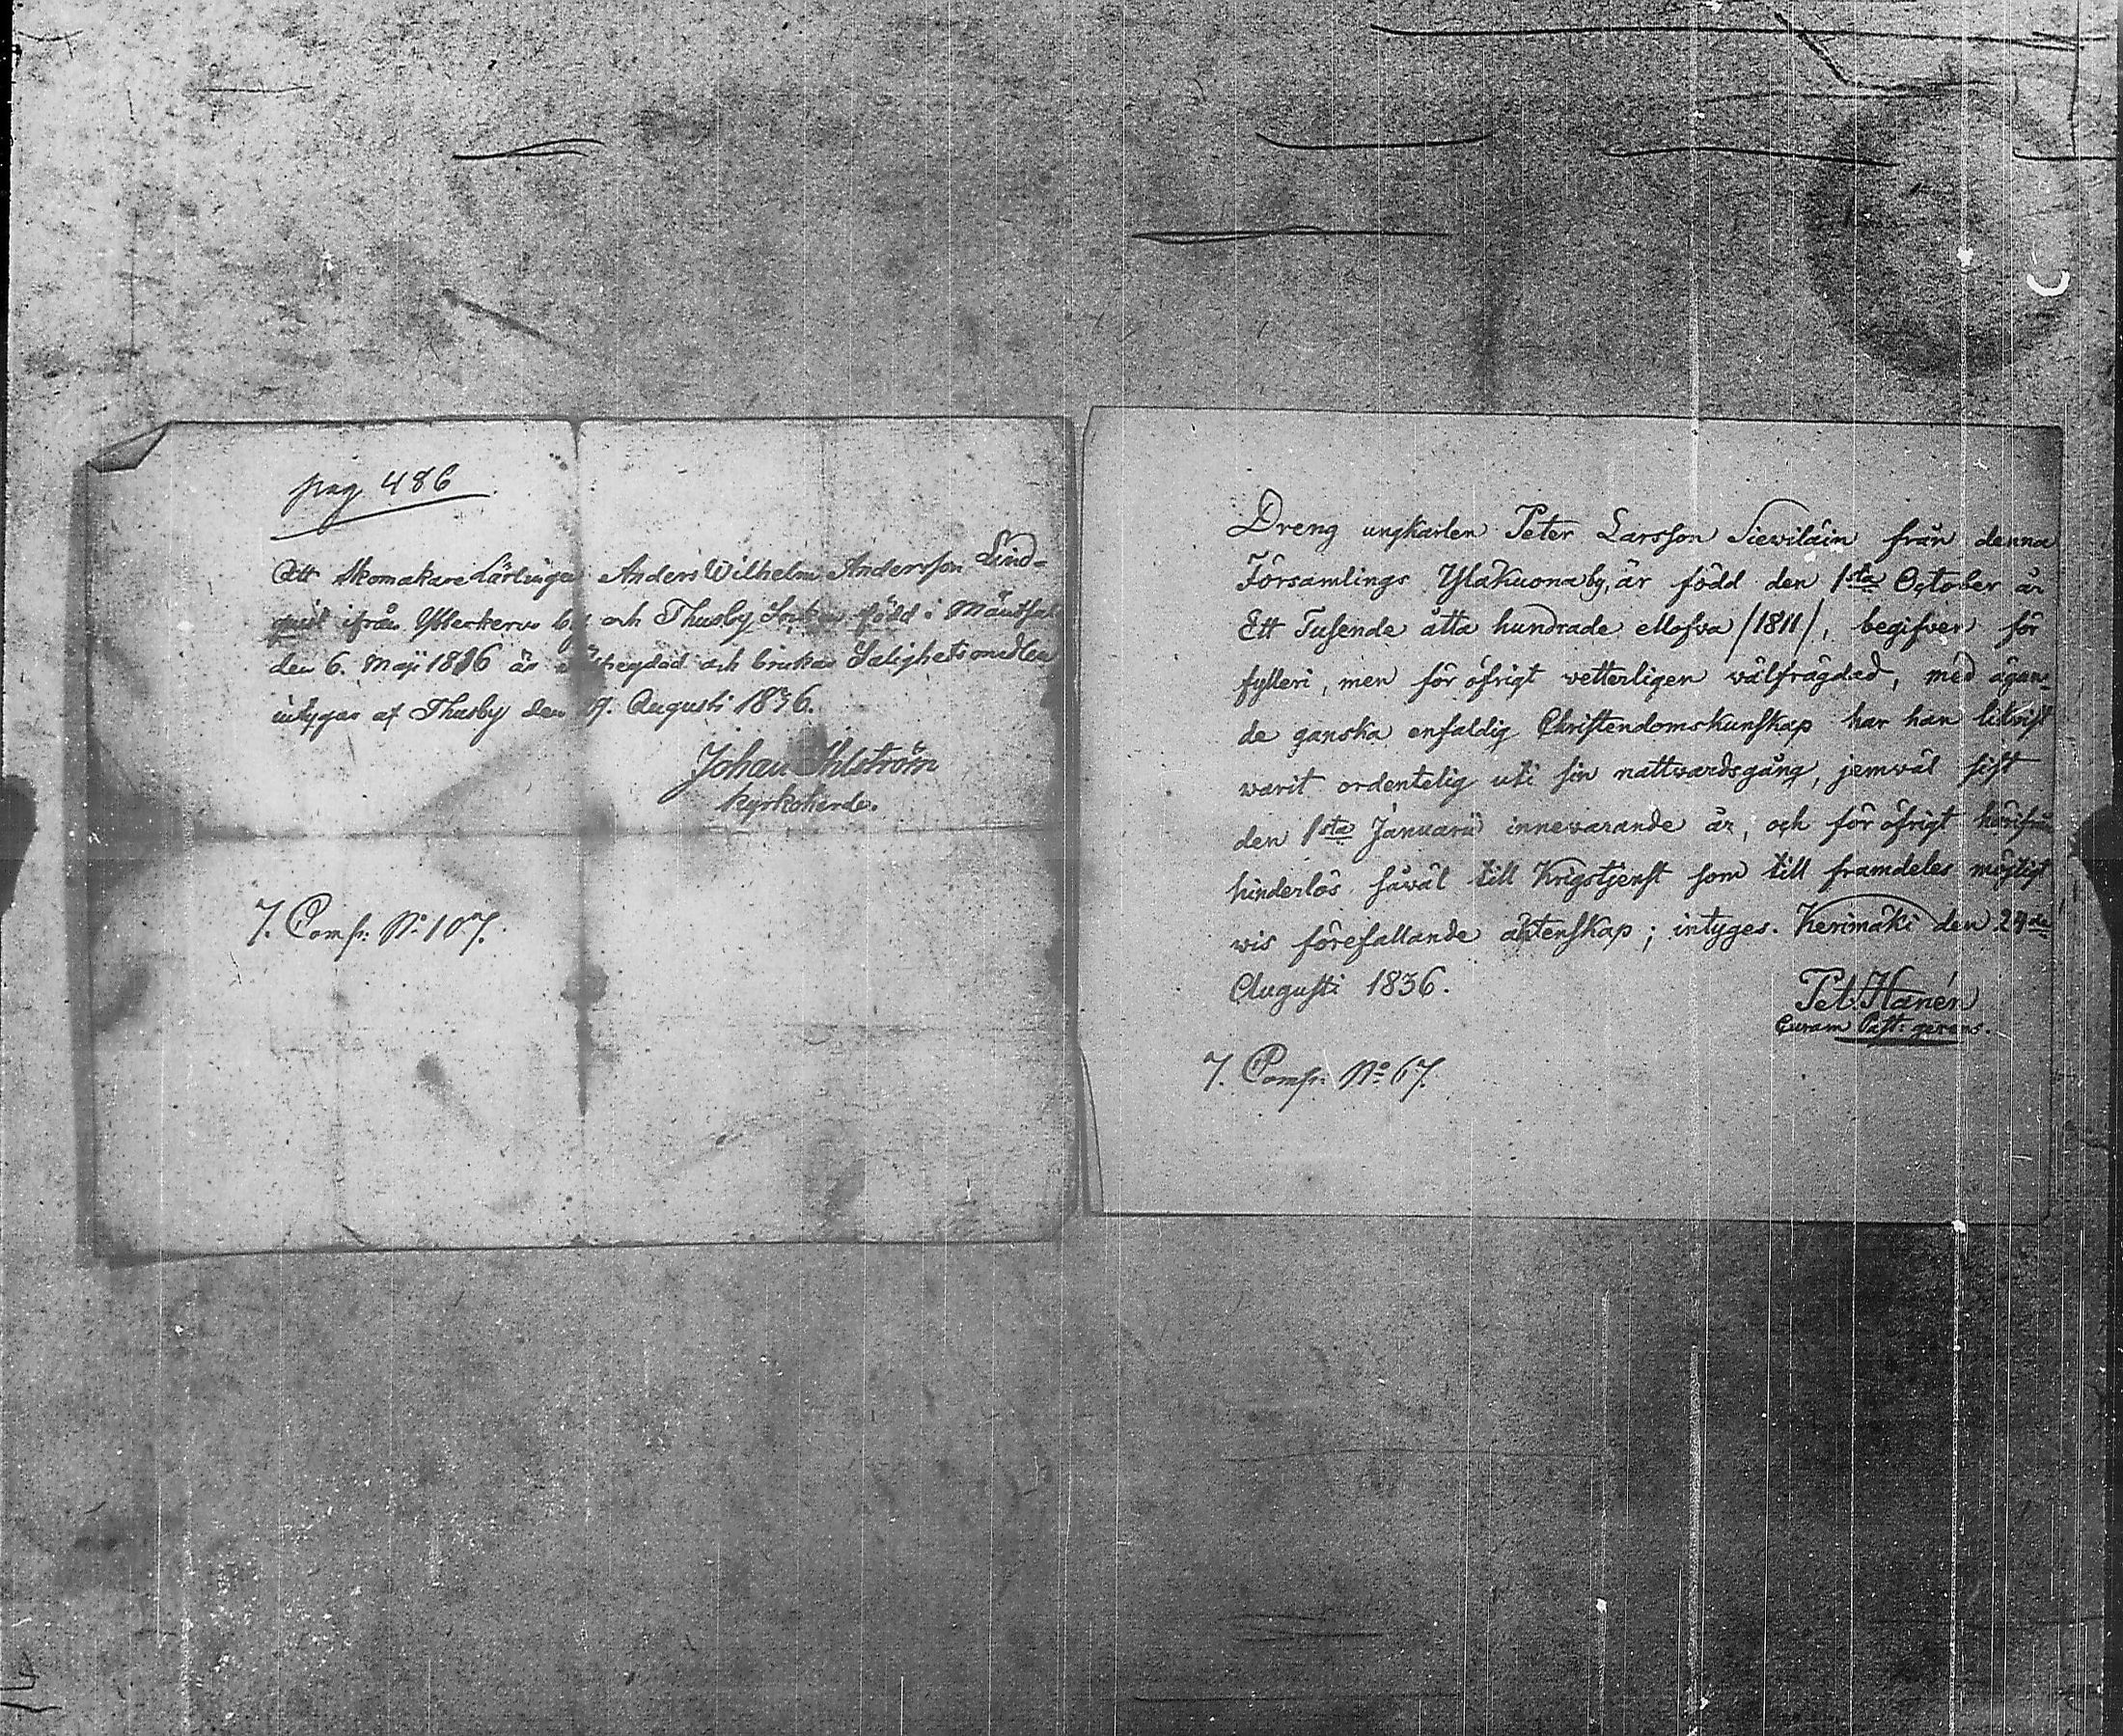 pag 486
Att Skomakare Lärlingen Anders Wilhelm Andersson Lind-
qvist ifrån Ylikerkeru by och Thusby Socken född i Mäntsälä
den 6. Maji 1816 är välfregdad och brukar Salighetsmedlen
intygar af Thusby den 19. Augusti 1836.
Johan Ahlström
Kyrkoherde.
7. Comp: No 107.
Dreng ungkarlen Peter Larsson Sieviläin från denna
Församlings Ylakuona by, är född den 1sta October år
Ett Tusende åtta hundrade ellofva /1811/, begifven för
fylleri, men för öfrigt vetterligen välfrägdad, med ägan-
de ganska enfaldig Christendomskunskap har han likvist
warit ordentelig uti sin nattvardsgång, jemväl sist
den 1sta Januarii innevarande år, och för öfrigt härifrån
hinderlös såväl till Krigstjenst som till framdeles möjligt
wis förefallande äktenskap; intyges. Kerimäki den 24de
Augusti 1836.
Pet. Hanén
Curam Past: gerens.
7. Comp: No 67.